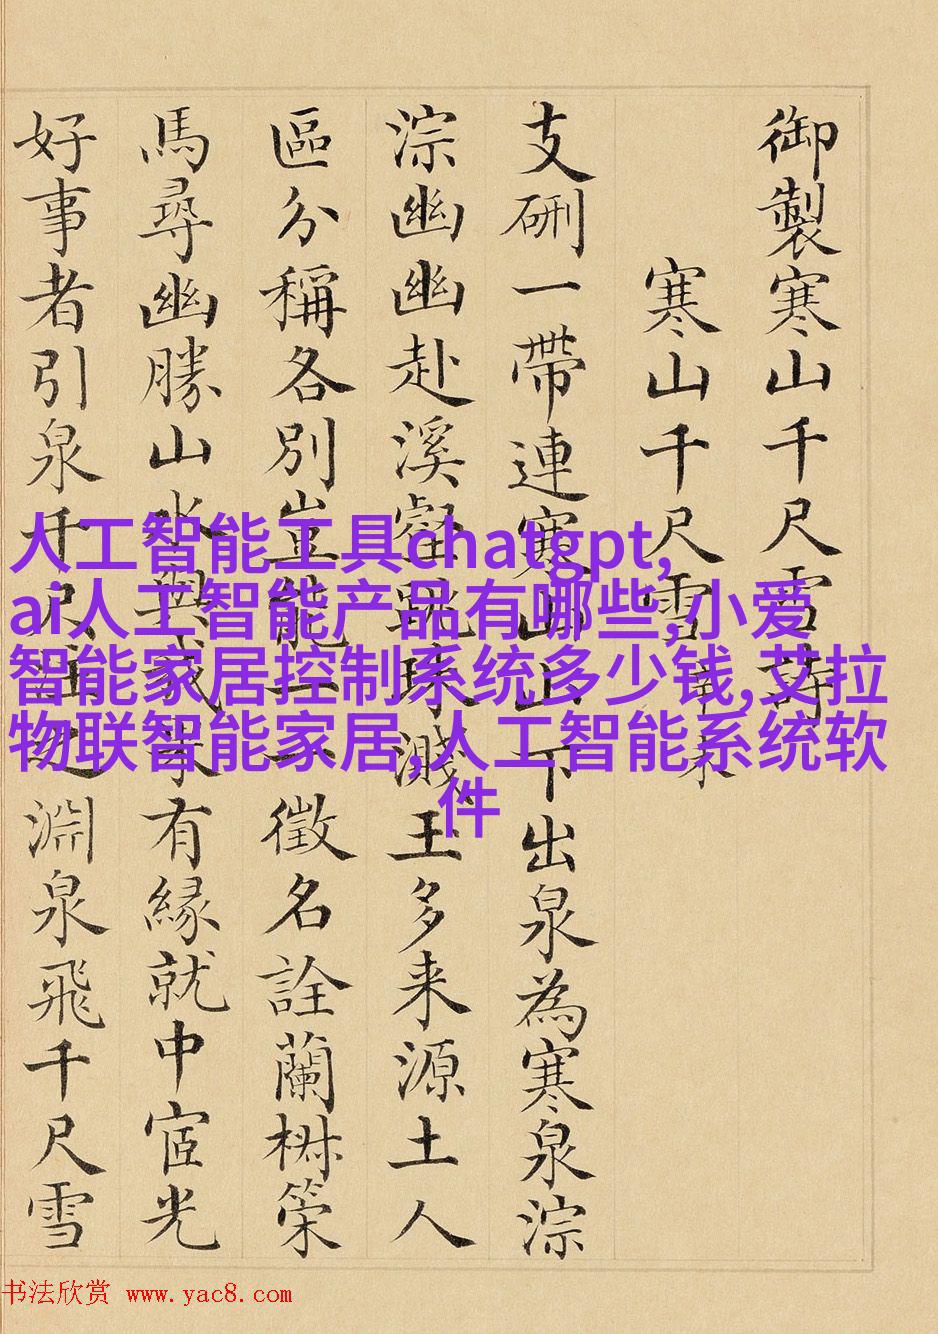 御製寒山千尺雪詩
寒山千尺雪
支硎一帶連寒山山下出泉為寒泉淙
淙幽幽赴溪壑跳珠濺玉多来源土人
區分稱各別豈能一一徵名詮蘭椒策
馬尋幽勝山水與我果有緣就中宧光
好事者引泉千尺注之淵泉飛千尺雪
人工智能工具chatgpt,
ai人工智能产品有哪些,小爱
智能家居控制系统多少钱,艾拉
物联智能家居,人工智能系统软
件
书法欣赏 www.yac8.com